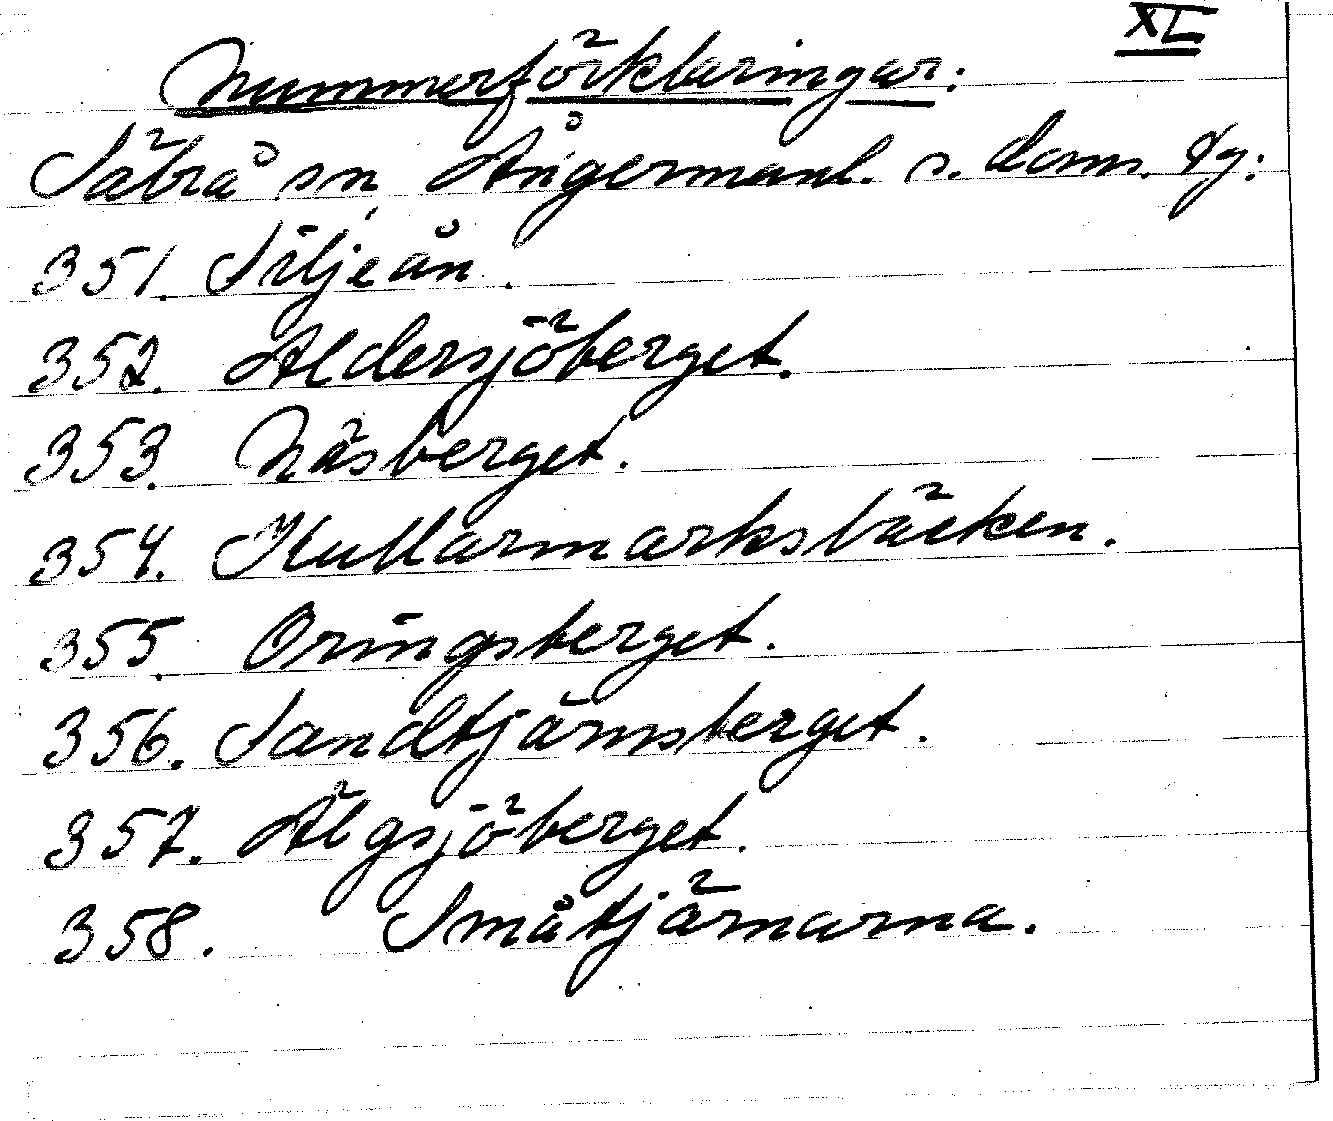 XL
Nummerförklaringar.
Säbrå sn Ångermanl. s. doms. fg:
351. Säljeån.
352. Äldersjöberget.
353. Näsberget.
354. Kullarmarksbäcken.
355. Öringsberget.
356. Sandtjärnsberget.
357. Älgsjöberget.
358. Småtjärnarna.